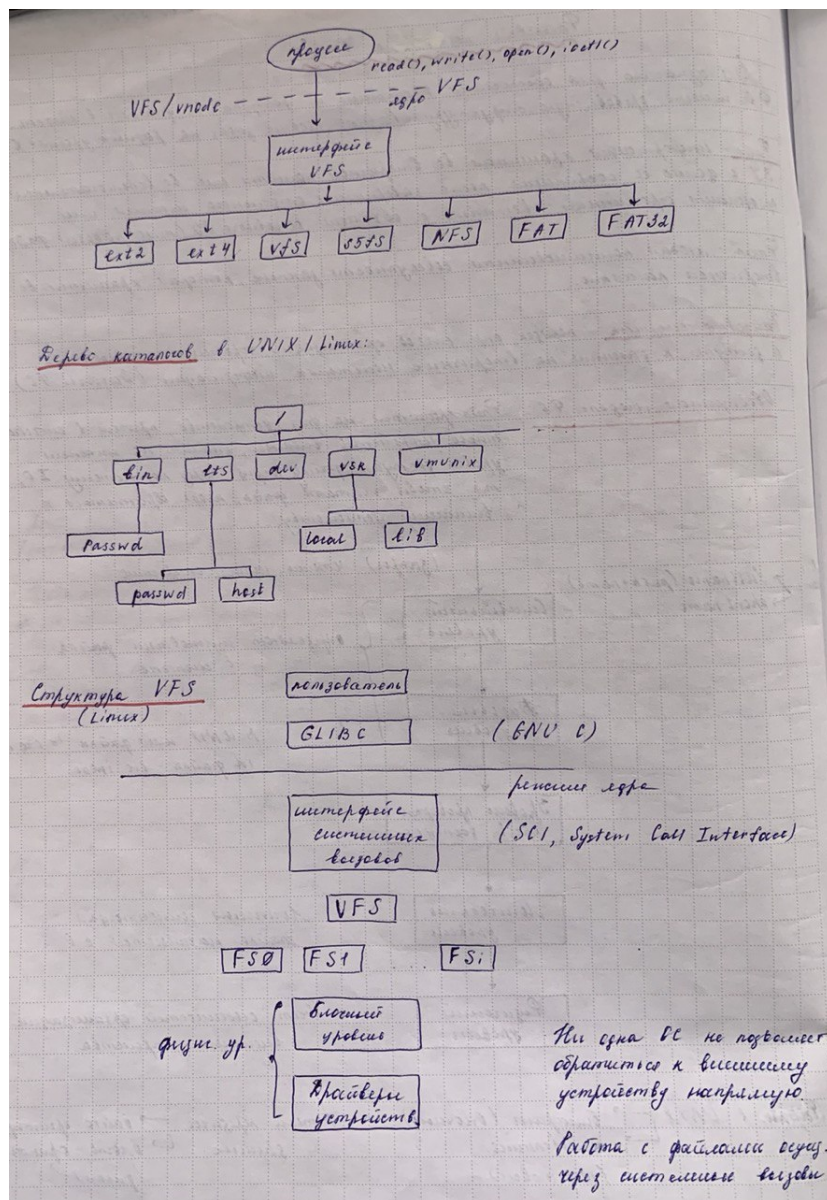 процесс
read(), write(), open(), ioctl()
VFS/vnode
ядро VFS
интерфейс
VFS
ext2 ext4 vfs s5fs NFS FAT FAT32
Дерево каталогов в UNIX / Linux:
/
bin dev usr vmunix
Passwd local lib
passwd host
Структура VFS
(Linux)
пользователь
GLIBC (GNU C)
режим ядра
интерфейс
системных
вызовов
(SCI, System Call Interface)
VFS
FS0 FS1 ... FSi
физич. ур.
Блочный
уровень
Драйверы
устройств
Ни одна ОС не позволяет
обратиться к внешнему
устройству напрямую.
Работа с файлами осущ.
через системные вызовы